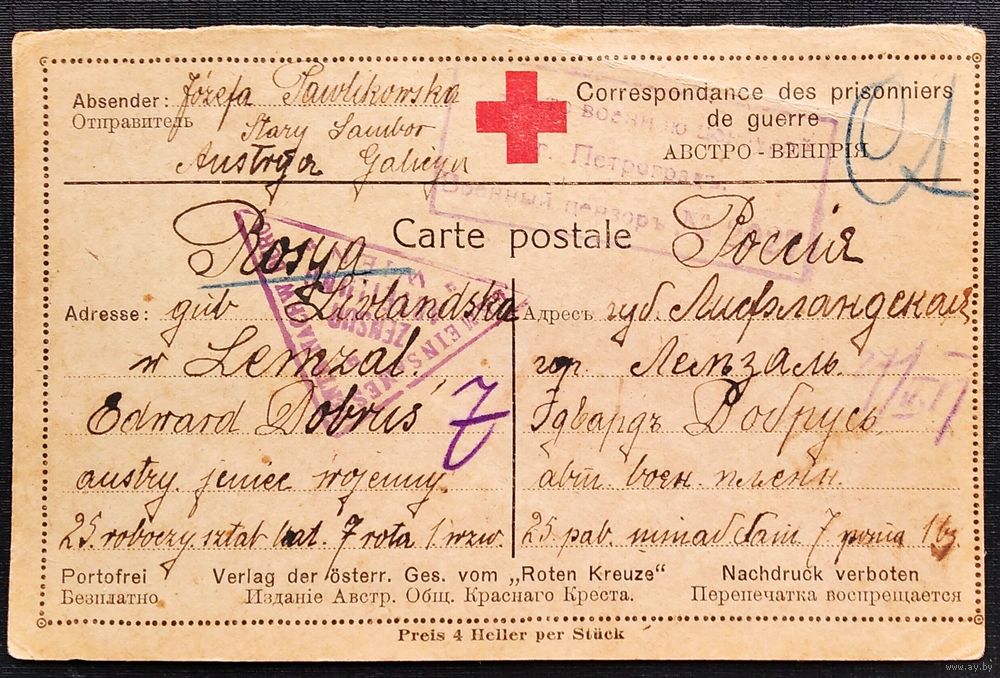 Absender: Józefa Pawlikowska
Отправитель
Stary Sambor
Austrya Galicya
Correspondance des prisonniers
de guerre
АВСТРО-ВЕНГРІЯ
01
г. Петроградъ.
Военный цензоръ
Carte postale
Rosya
Россія
Adresse: gub Liwlandska
Адресъ губ. Лифляндская
w Lemzal.
гор Лемзаль
Edward Dobruś
Эдвардъ Добрусь
7
austry. jeniec wojenny.
авст. воен. плѣнн.
25. roboczy sztab bat. 7 rota 1. wzw.
25. раб. 7 рота 1 вз.
Portofrei
Безплатно
Verlag der österr. Ges. vom „Roten Kreuze"
Изданіе Австр. Общ. Краснаго Креста.
Nachdruck verboten
Перепечатка воспрещается
Preis 4 Heller per Stück
www.ay.by